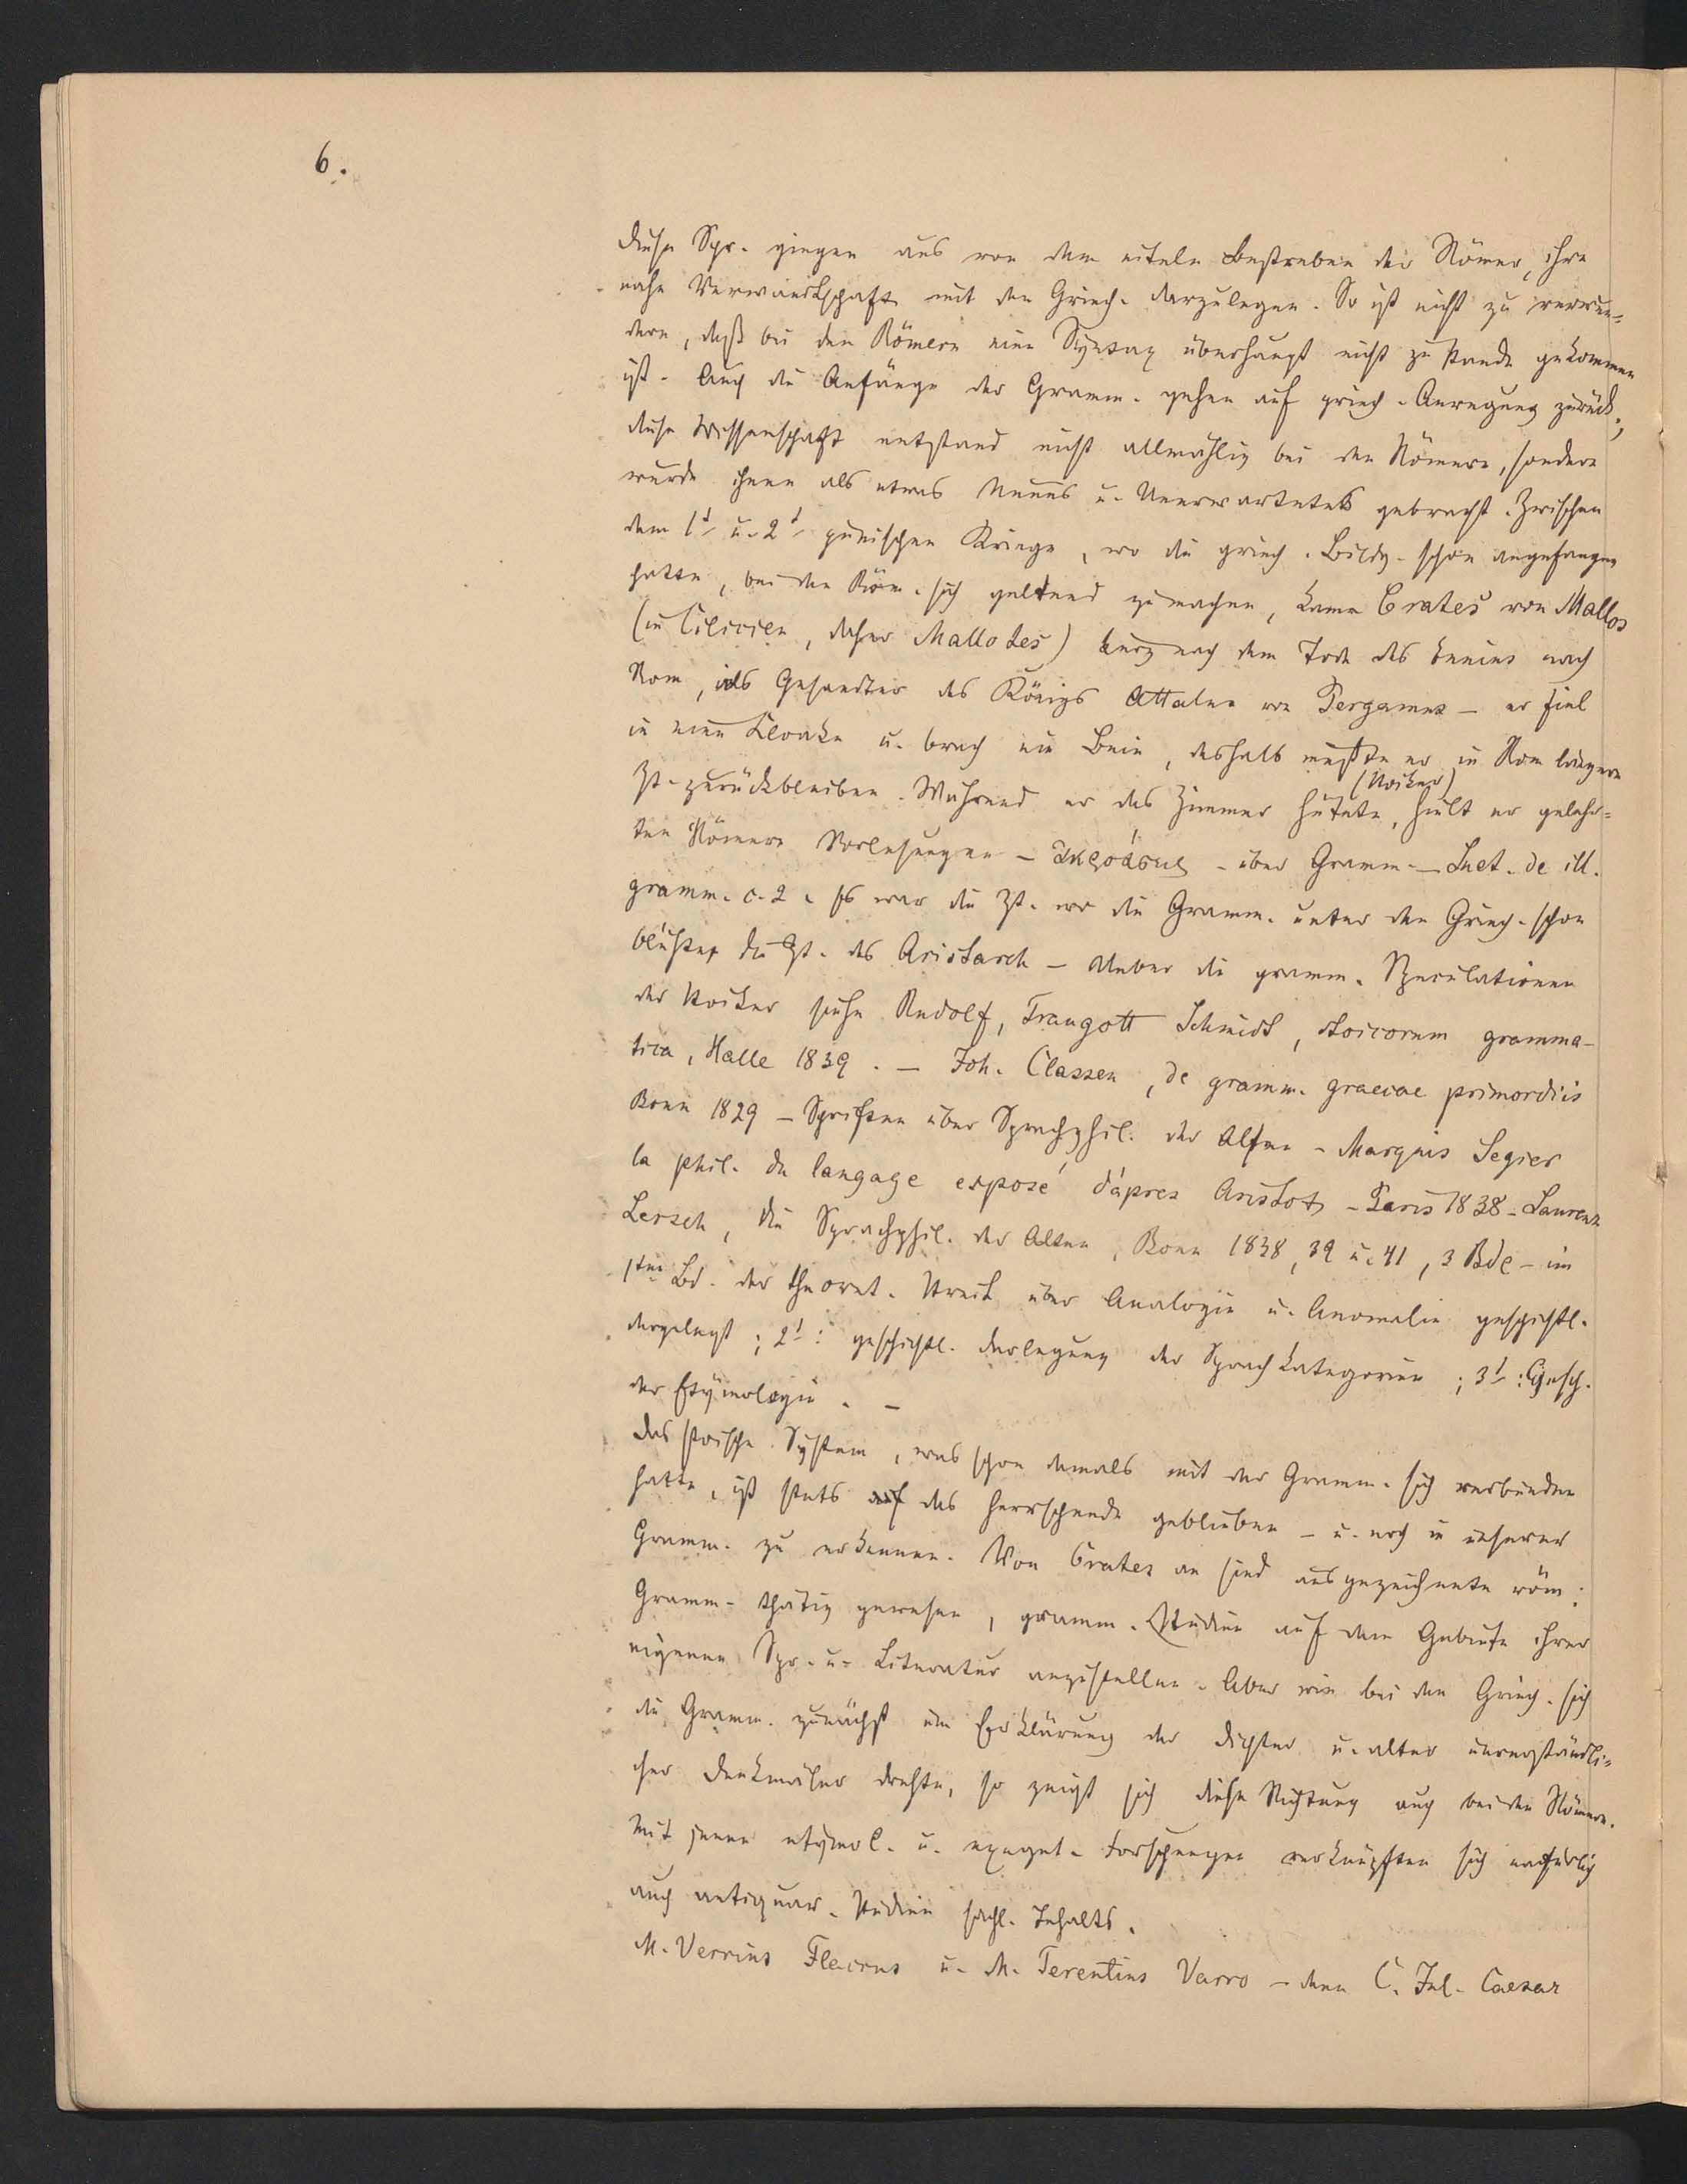 6.
diese Spr. gingen aus von dem eiteln Bestreben der Römer, ihre
nahe Verwandtschaft mit den Griech. darzulegen. So ist nicht zu verwun-
dern, daß bei den Römern eine Syntax überhaupt nicht zu stande gekommen
ist. Auch die Anfänge der Gramm. gehen auf griech. Anregung zurück;
diese Wissenschaft entstand nicht allmählig bei den Römern, sondern
wurde ihnen als etwas Neues u. Unerwartetes gebracht. Zwischen
dem 1t u. 2t punischen Kriege, wo die griech. Bildg. schon angefangen
hatte, bei den Röm. sich geltend zu machen, kam Crates von Mallos
(in Cilicien, daher Mallotes) kurz nach dem Tode des Ennius nach
Rom, als Gesandter des Königs Attalus von Pergamus – er fiel
in eine Kloake u. brach ein Bein, deshalb mußte er in Rom längere
Zt. zurückbleiben. Während er das Zimmer hütete, hielt er gelehr-
(Stoiker)
ten Römern Vorlesungen – ἀκροάσεις – über Gramm. – Suet. de ill.
gramm. c. 2. Es war die Zt. wo die Gramm. unter den Griech. schon
blühte, die Zt. des Aristarch – Ueber die gramm. Speculationen
der Stoiker siehe Rudolf, Traugott Schmidt, stoicorum gramma-
tica, Halle 1839. – Joh. Classen, de gramm. graecae primordiis
Bonn 1829 – Schriften über Sprachphil. der Alten – Marquis Segier
la phil. du langage exposé d'après Aristot – Paris 1838 – Laurenz
Lersch, die Sprachphil. der Alten, Bonn 1838, 39 u. 41, 3 Bde – im
1ten Bd. der theoret. Streit über Analogie u. Anomalie geschichtl.
dargelegt; 2t: geschichtl. Darlegung der Sprachkategorien; 3t: Gesch.
der Etymologie. –
Das stoische System, was schon damals mit der Gramm. sich verbunden
hatte, ist stets das herrschende geblieben – u. noch in unserer
Gramm. zu erkennen. Von Crates an sind ausgezeichnete röm.
Gramm. thätig gewesen, gramm. Studien auf dem Gebiete ihrer
eigenen Spr. u. Literatur anzustellen. Aber wie bei den Griech. sich
die Gramm. zunächst um Erklärung der Dichter u. alter unverständli-
cher Denkmäler drehte, so zeigt sich diese Richtung auch bei den Römern.
Mit jenen etymol. u. exeget. Forschungen verknüpften sich natürlich
auch antiquar. Studien sachl. Inhalts.
M. Verrius Flaccus u. M. Terentius Varro – denn C. Jul. Caesar